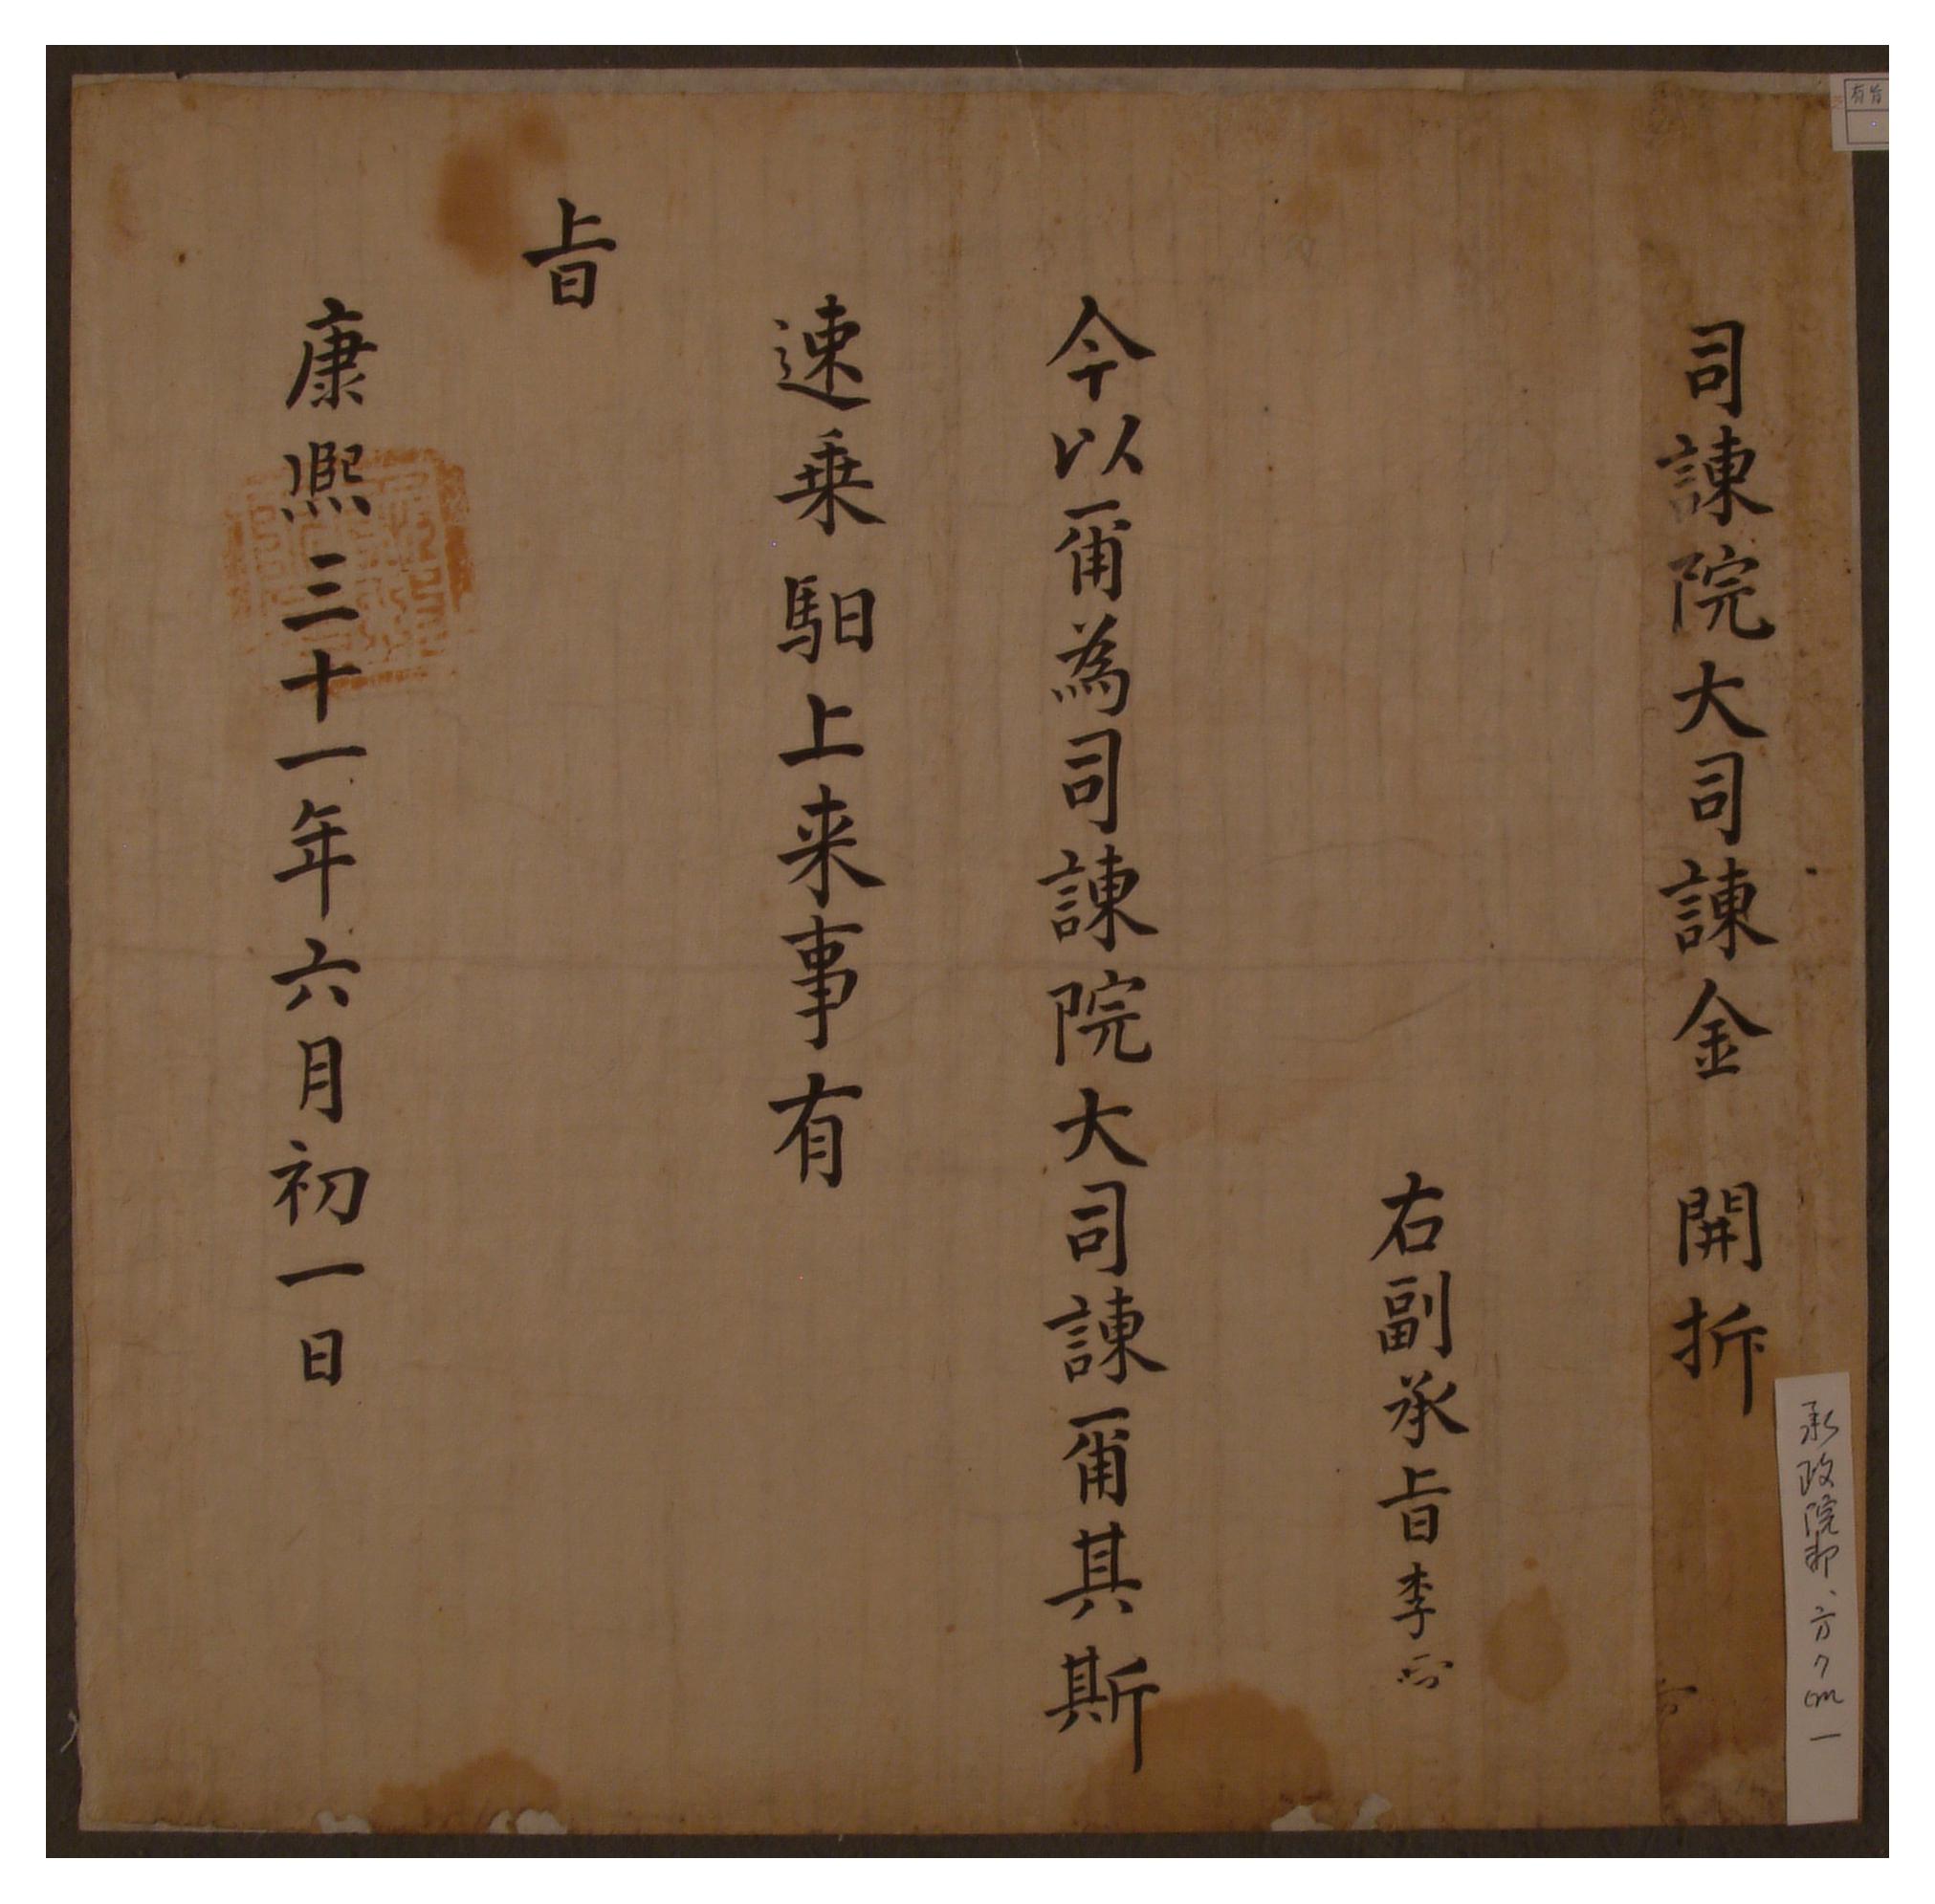 司諫院大司諫金 開拆
右副承旨李
今以爾為司諫院大司諫爾其斯
速乗馹上来事有
旨
康熙三十一年六月初一日
有旨
承政院印、方7cm一